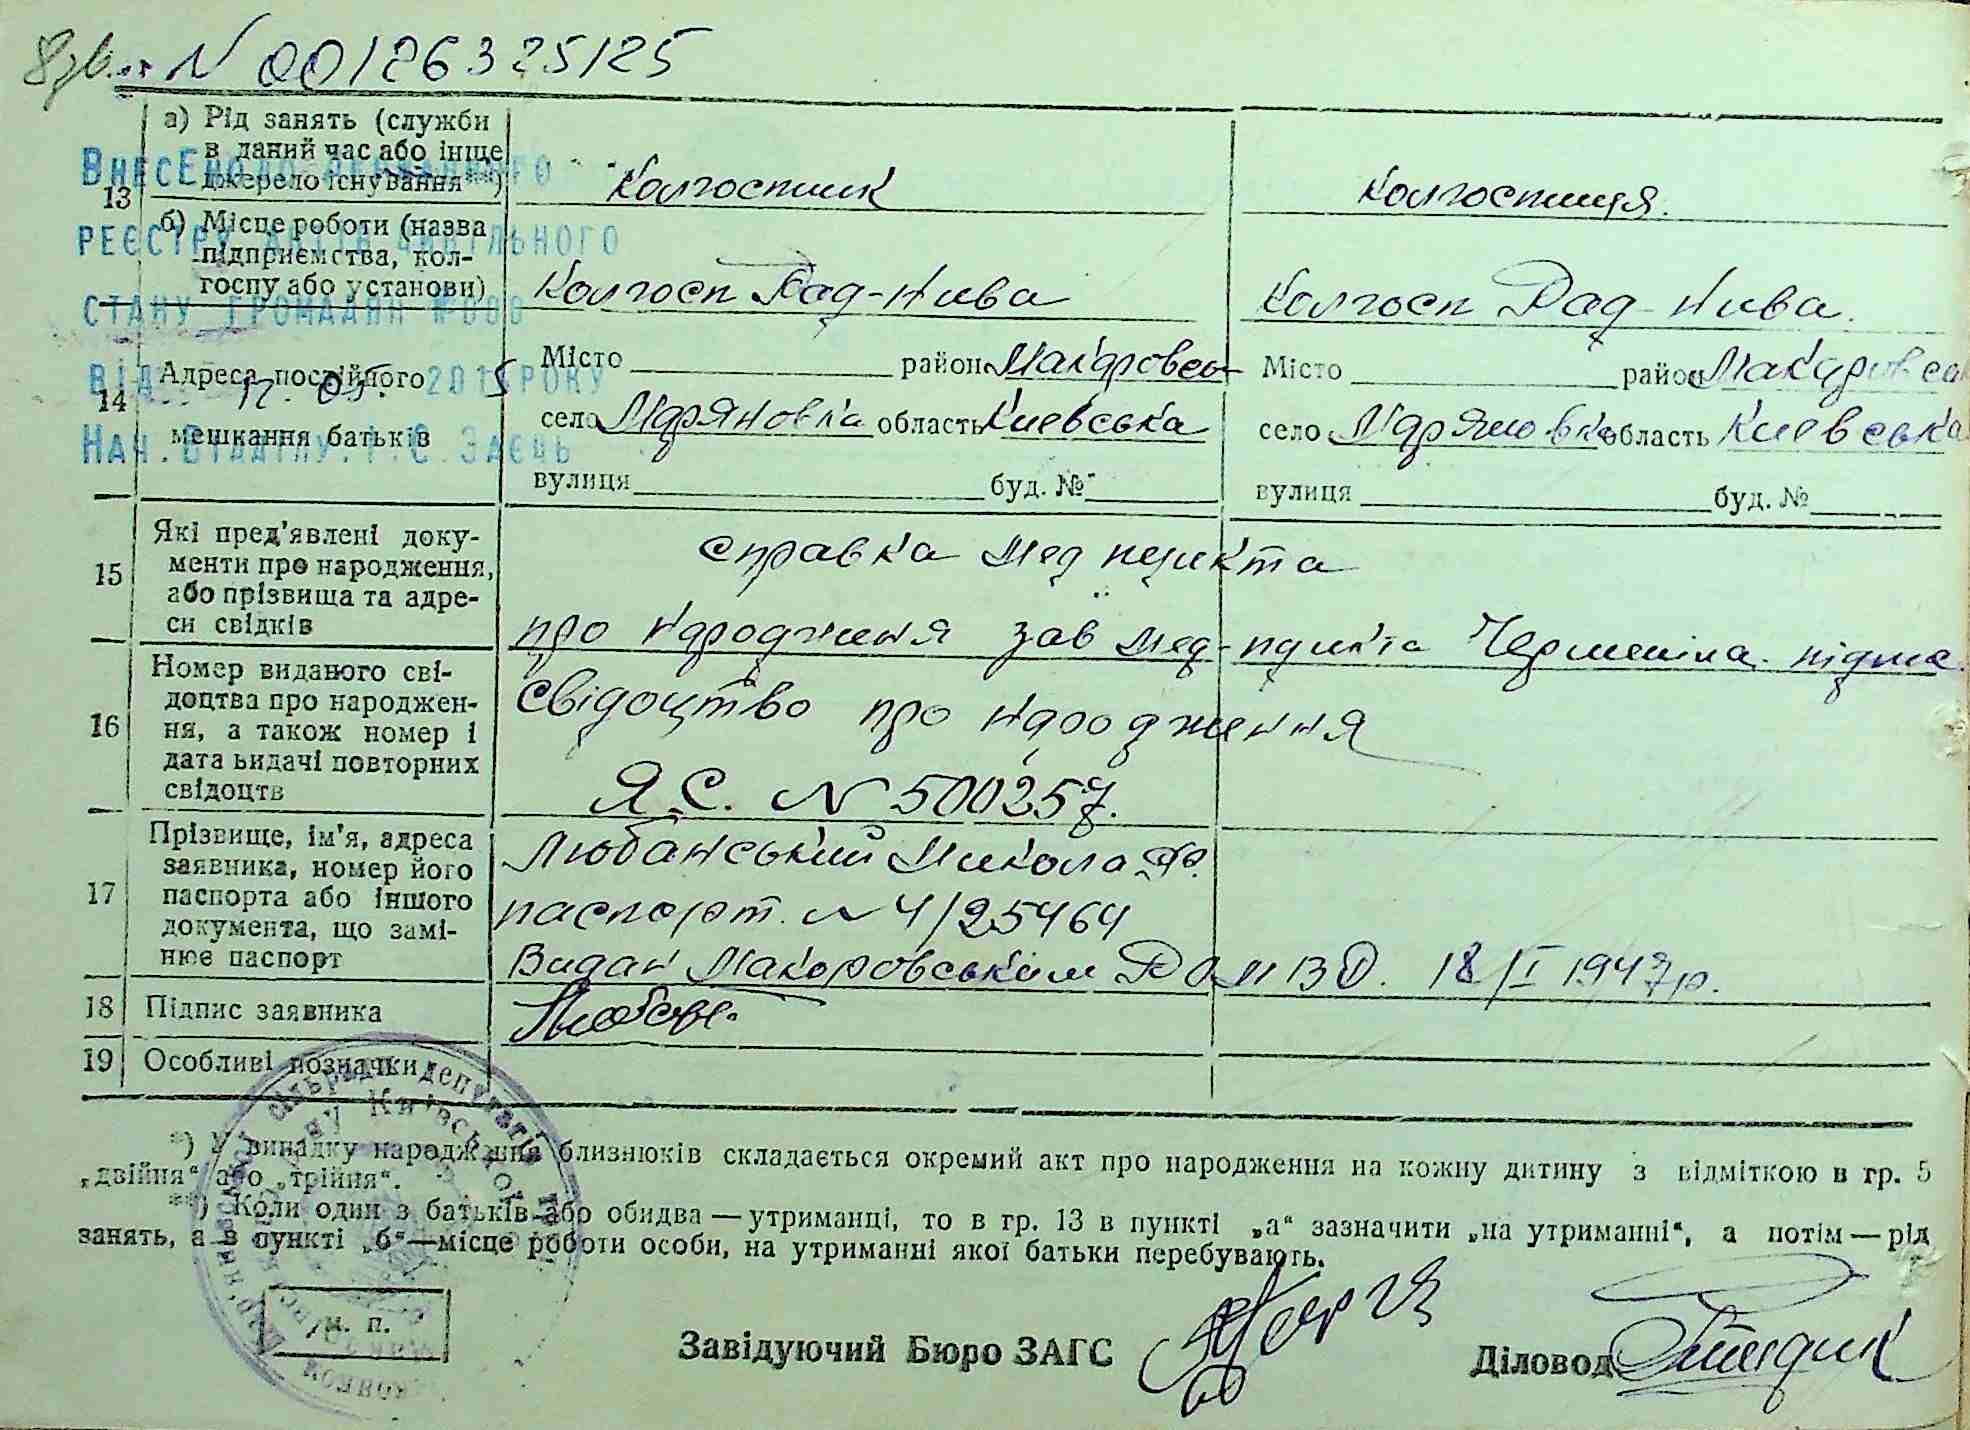 N 00126325125
а) Рід занять (служби
в даний час або інще
джерело існування**)
Колгоспник
Колгоспниця.
ВнесЕно до державного
13
б) Місце роботи (назва
підприємства, кол-
госпу або установи)
Колгосп Рад-Нива
Колгосп Рад-Нива.
реєстру актів цивільного
стану громадян №000
від 12. 05. 2015 року
Нач. Відділу І.С. Заєць
14
Адреса постійного
мешкання батьків
Місто район Макаровсь
село Мар'яновка область Киевська
вулиця буд. №
Місто район Макаровсь
село Мар'яновка область Киевська
вулиця буд. №
15
Які пред'явлені доку-
менти про народження,
або прізвища та адре-
си свідків
справка мед пункта
про народження зав мед-пункта
16
Номер виданого сві-
доцтва про народжен-
ня, а також номер і
дата видачі повторних
свідоцтв
свідоцтво про народження
Я.С. N 500257.
17
Прізвище, ім'я, адреса
заявника, номер його
паспорта або іншого
документа, що замі-
нює паспорт
Любанський Микола
паспорт. N 4/25464
Видан Макаровським РОМВД. 18/I 1947р.
18
Підпис заявника
19
Особливі позначки
*) У випадку народження близнюків складається окремий акт про народження на кожну дитину з відміткою в гр. 5
„двійня“ або „трійня“.
**) Коли один з батьків або обидва — утриманці, то в гр. 13 в пункті „а“ зазначити „на утриманні“, а потім — рід
занять, а в пункті „б“—місце роботи особи, на утриманні якої батьки перебувають.
м. п.
Завідуючий Бюро ЗАГС
Діловод